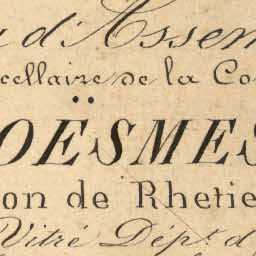 d'Assem
cellaire de la Co
OËSMES
on de Rhetie
Vitré Dépt. d